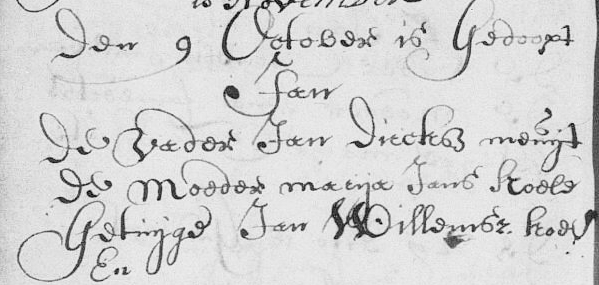 10 November
Den 9 October is Gedoopt
Jan
De Vader Jan Dircksz
De Moeder marya Jans Koele
Getuyge Jan Willemsz. Koel
En